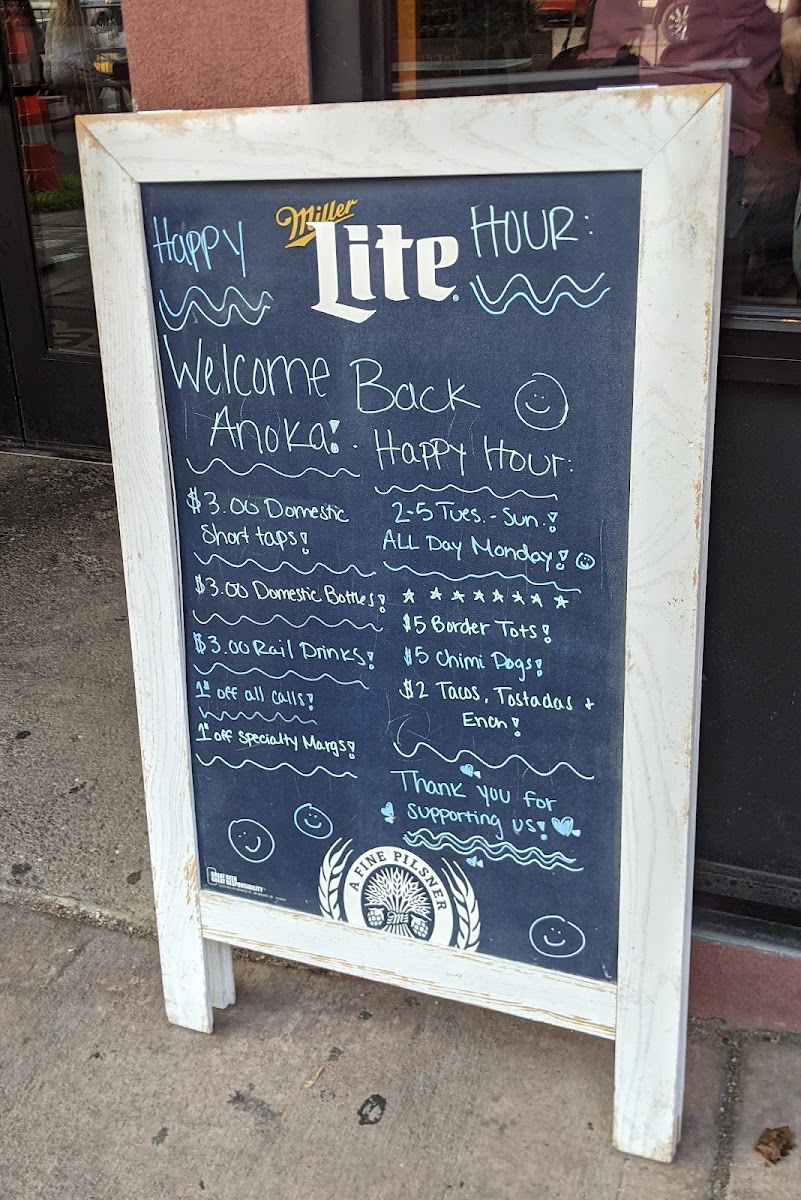 Happy
Miller
Lite
HOUR:
Welcome Back
Anoka!
$3.00 Domestic
Short taps!
$3.00 Domestic Bottles!
$3.00 Rail Drinks!
1" off all calls!
1" off specialty Margs!
Happy Hour:
2-5 Tues.-Sun.!
ALL Day Monday!
$5 Border Tots!
$5 Chimi Dogs!
$2 Tacos, Tostadas +
Ench!
Thank you for
supporting us!
A FINE PILSNER
GREAT BEER
GREAT RESPONSIBILITY